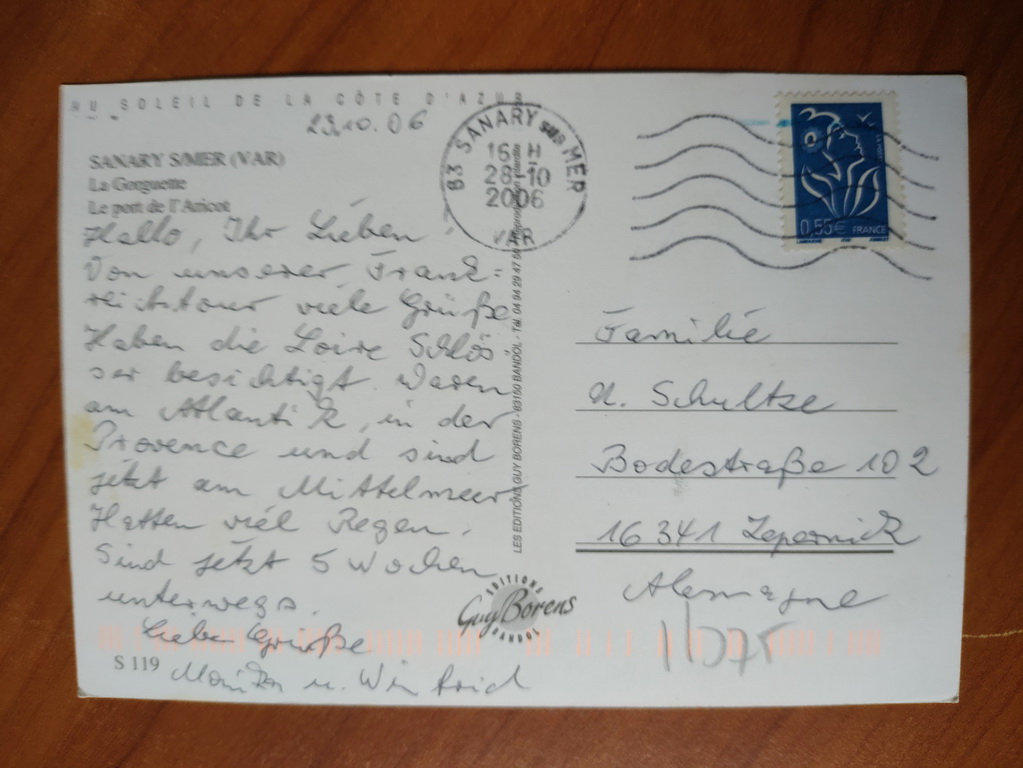 AU SOLEIL DE LA CÔTE D'AZUR
23.10.06
SANARY S/MER (VAR)
La Gorguette
Le port de l'Aricot
Hallo, Ihr Lieben,
Von unserer Frank=
reichtour viele Grüße
Haben die Loire Schlös-
ser besichtigt. Waren
am Atlantik, in der
Provence und sind
jetzt am Mittelmeer
Hatten viel Regen.
Sind jetzt 5 Wochen
unterwegs.
Liebe Grüße
Monika u. Winfried
S 119
83 SANARY SUR MER
16 H
28-10
2006
VAR
LES EDITIONS GUY BORENS - 83150 BANDOL - Tél. 04 94 29 47 56
EDITIONS
Guy Borens
BANDOL
0,55€ FRANCE
Familie
U. Schultze
Bodestraße 102
16341 Zepernick
Alemagne